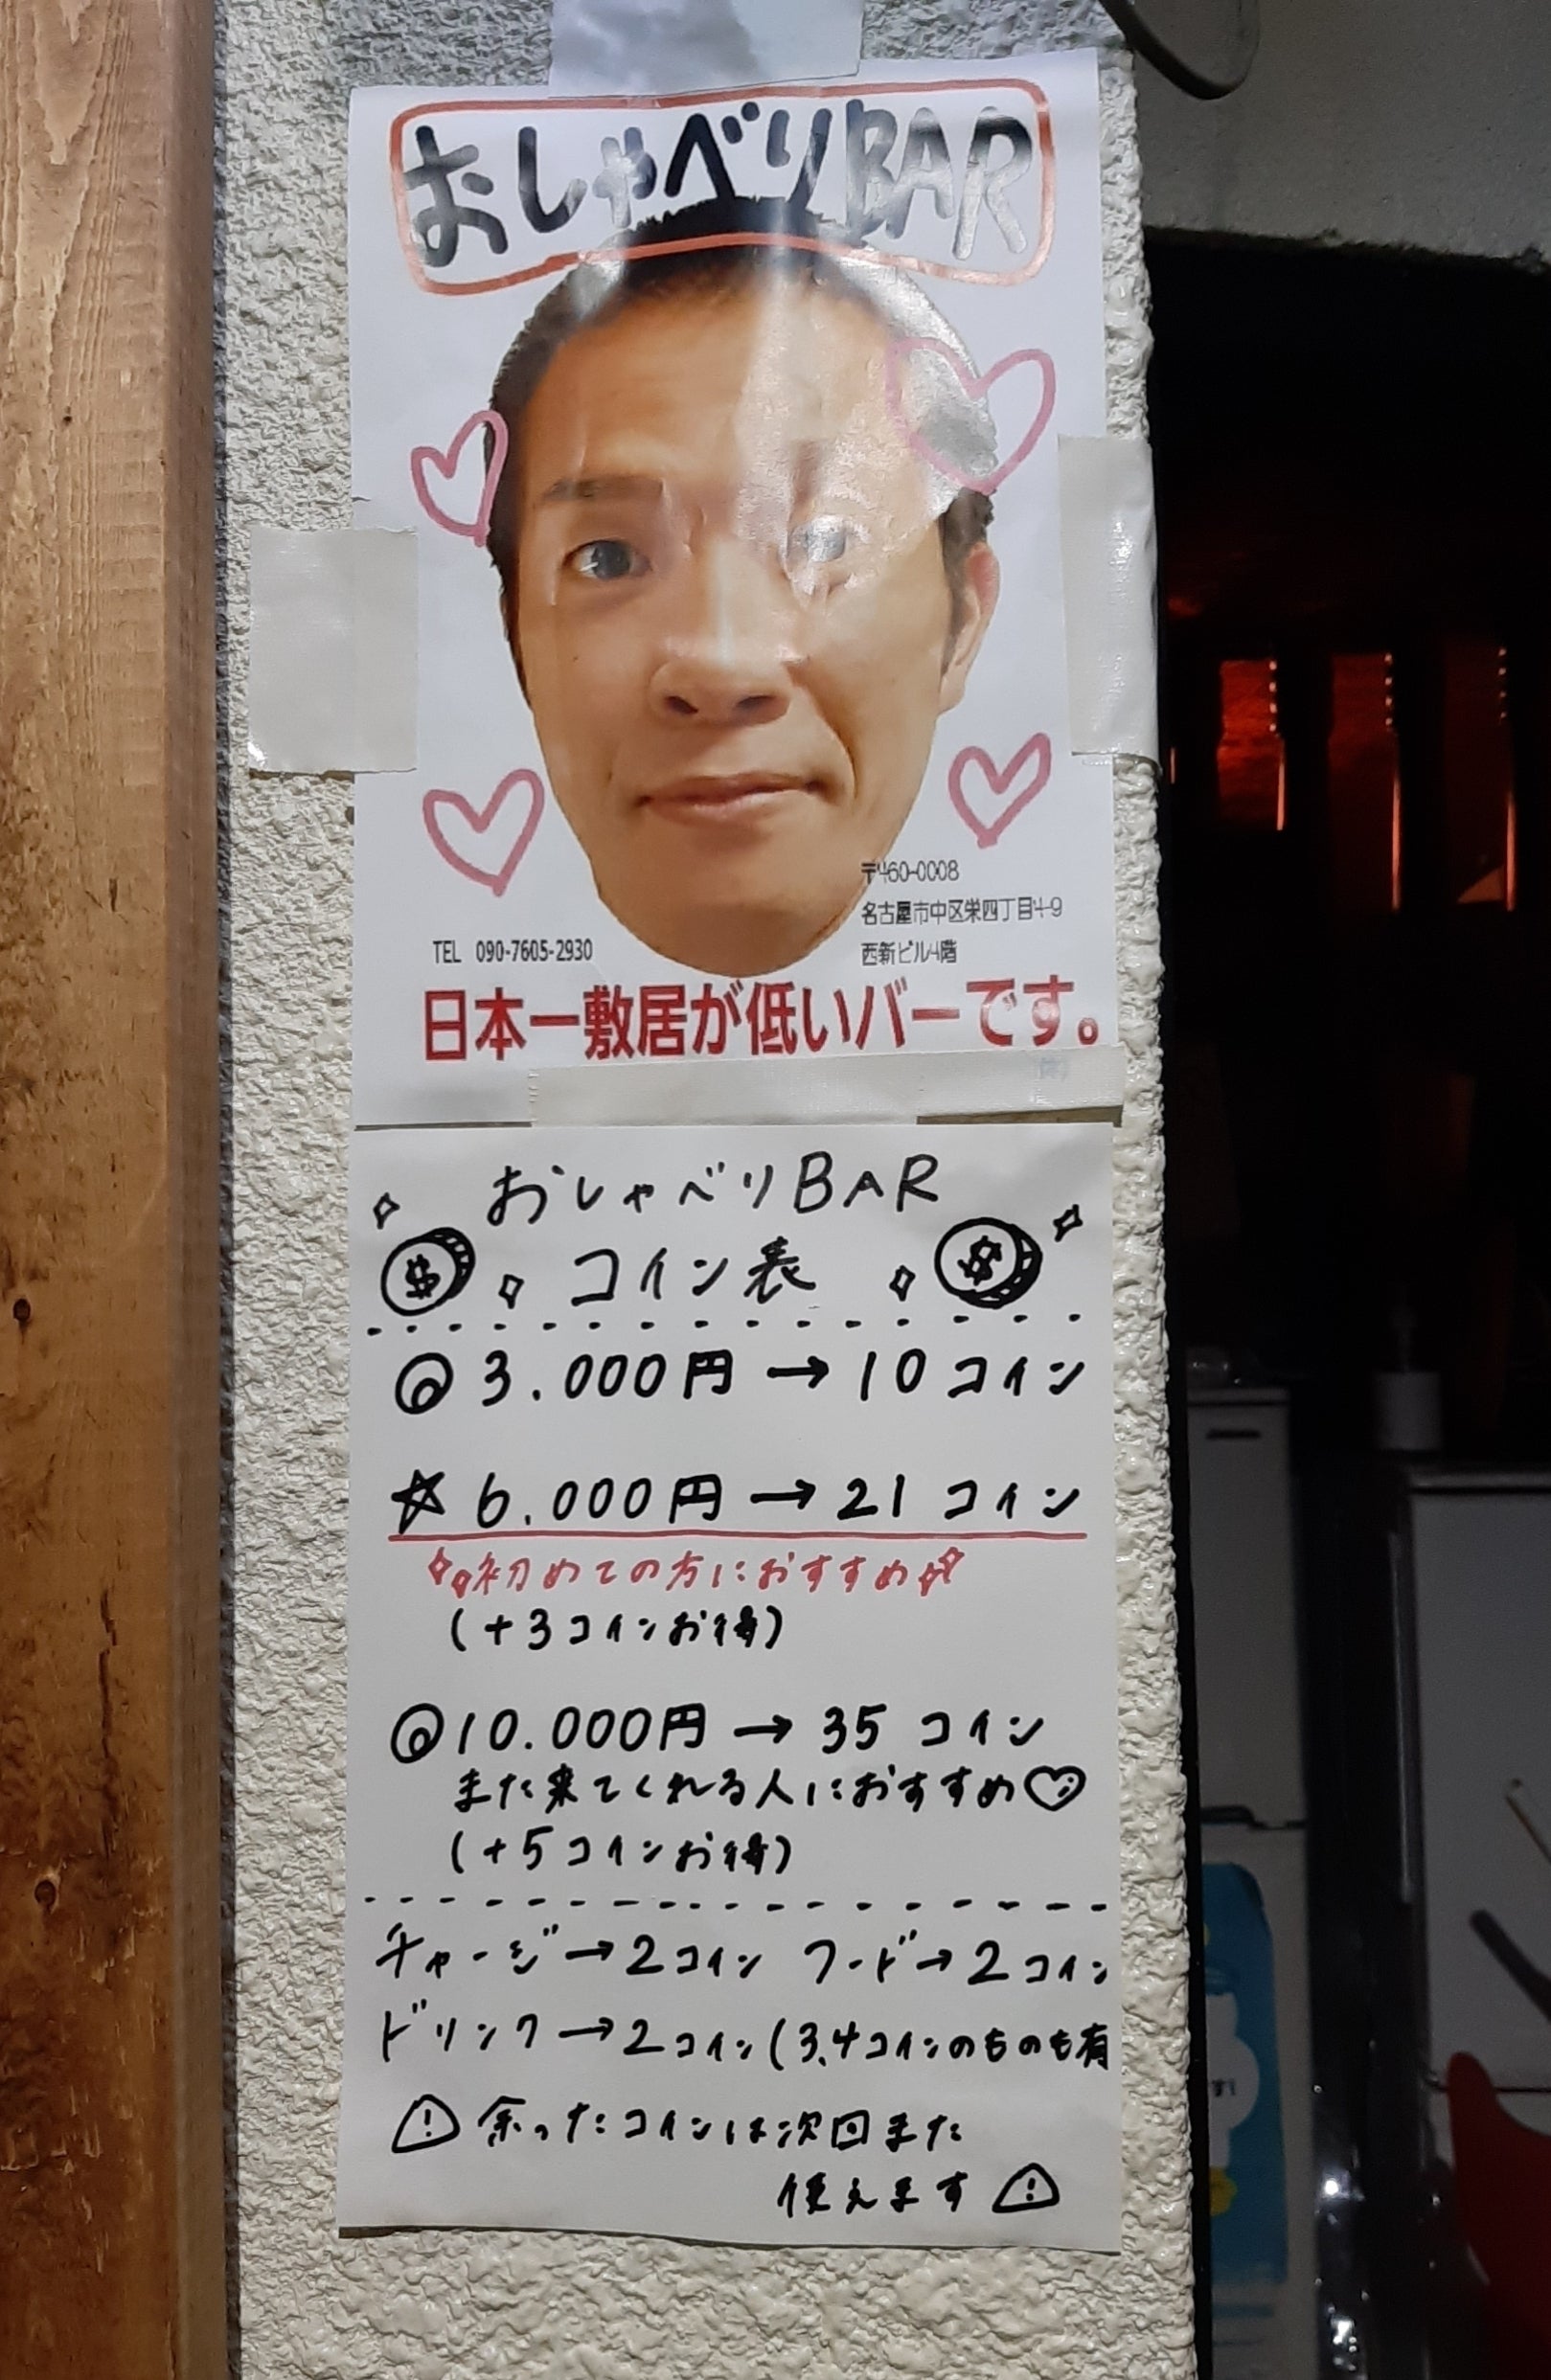 おしゃべりBAR
TEL 090-7605-2930
〒460-0008
名古屋市中区栄四丁目4-9
西新ビル4階
日本一敷居が低いバーです。
おしゃべりBAR
$ コイン表 $
3.000円→10コイン
☆6.000円→21コイン
初めての方におすすめ
(+3コインお得)
10.000円→35コイン
また来てくれる人におすすめ♡
(+5コインお得)
チャージ→2コイン フード→2コイン
ドリンク→2コイン(3.4コインのものも有
余ったコインは次回また
使えます